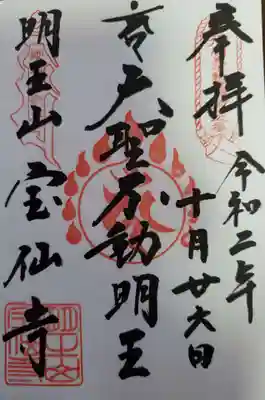 奉拝
令和二年
十月廿六日
聖不動明王
明王山
宝仙寺